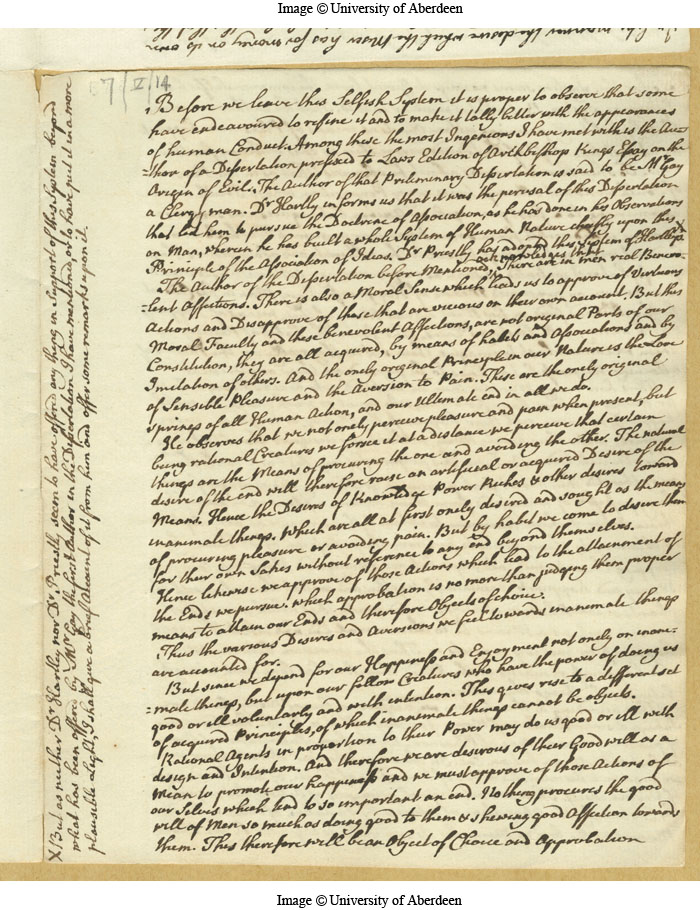 Image © University of Aberdeen
7/V/14
Before we leave this Selfish System it is proper to observe that some
have endeavoured to refine it and to make it tally better with the appearances
of human Conduct. Among these the most Ingenious I have met with is the Au-
-thor of a Dissertation prefixed to Laws Edition of Archbishop Kings Essay on the
Origin of Evil. The Author of that Preliminary Dissertation is said to be Mr Gay
a Clergyman. Dr Hartly informs us that it was the perusal of this Dissertation
that led him to pursue the Doctrine of Association, as he has done in his Observations
on Man, wherein he has built a whole System of Human Nature chiefly upon this
Principle of the Association of Ideas. Dr Priestly has adopted this System of Hartleys X
The Author of the Dissertation before Mentioned, acknowledges that There are in men real Benevo-
-lent Affections. There is also a Moral Sense which leads us to approve of Virtuous
Actions and Disapprove of those that are vicious on their own account. But this
Moral Faculty and these benevolent Affections, are not original Parts of our
Constitution, they are all acquired, by means of habits and Associations and by
Imitation of others. And the onely original Principle in our Nature is the Love
of Sensible Pleasure and the Aversion to Pain. These are the onely original
springs of all Human Action, and our Ultimate end in all we do.
He observes that we not onely perceive pleasure and pain when present, but
being rational Creatures we foresee it at a distance we perceive that certain
things are the Means of procuring the one and avoiding the other. The natural
desire of the end will therefore raise an artificial or acquired Desire of the
Means. Hence the Desires of Knowledge Power Riches & other desires toward
inanimate things. Which are all at first onely desired and sought as the means
of procuring pleasure or avoiding pain. But by habit we come to desire them
for their own Sakes without reference to any end beyond themselves.
Hence likewise we approve of those Actions which lead to the attainment of
the Ends we pursue. which approbation is no more than judging them proper
means to attain our Ends and therefore Objects of choice.
Thus the various Desires and Aversions we feel towards inanimate things
are accounted for.
But since we depend for our Happiness and Enjoyment not onely on inani-
-mate things, but upon our fellow Creatures who have the power of doing us
good or ill voluntarly and with intention. This gives rise to a different set
of acquired Principles, of which inanimate things cannot be objects.
Rational Agents in proportion to their Power may do us good or ill with
design and Intention. And therefore we are desirous of their Good will as a
Mean to promote our happiness and we must approve of those Actions of
our Selves which tend to so important an end. Nothing procures the good
will of Men so much as doing good to them & shewing good Affection towards
them. This therefore will be an Object of Choice and Approbation
X But as neither Dr Hartley nor Dr Priestly seem to have offered any thing in Support of this System beyond
what has been offered by Mr Gay the first Author in the Dissertation I have mentioned, or to have put it in a more
plausible Light, I shall give a brief Account of it from him and offer some remarks upon it.
Image © University of Aberdeen